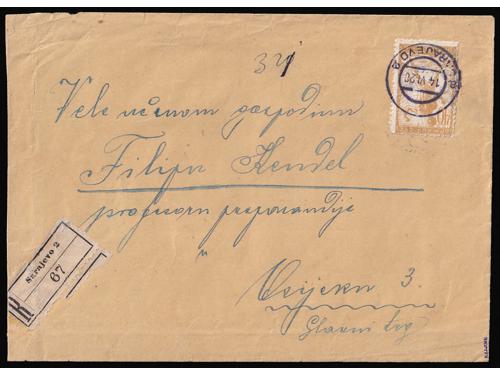 SARAJEVO 2
14 VI 20
40
34
Vele učenom gospodinu
Filipu Kendel
profesoru preparandije
u
Osijeku 3.
Glavni trg
R
Sarajevo 2
67